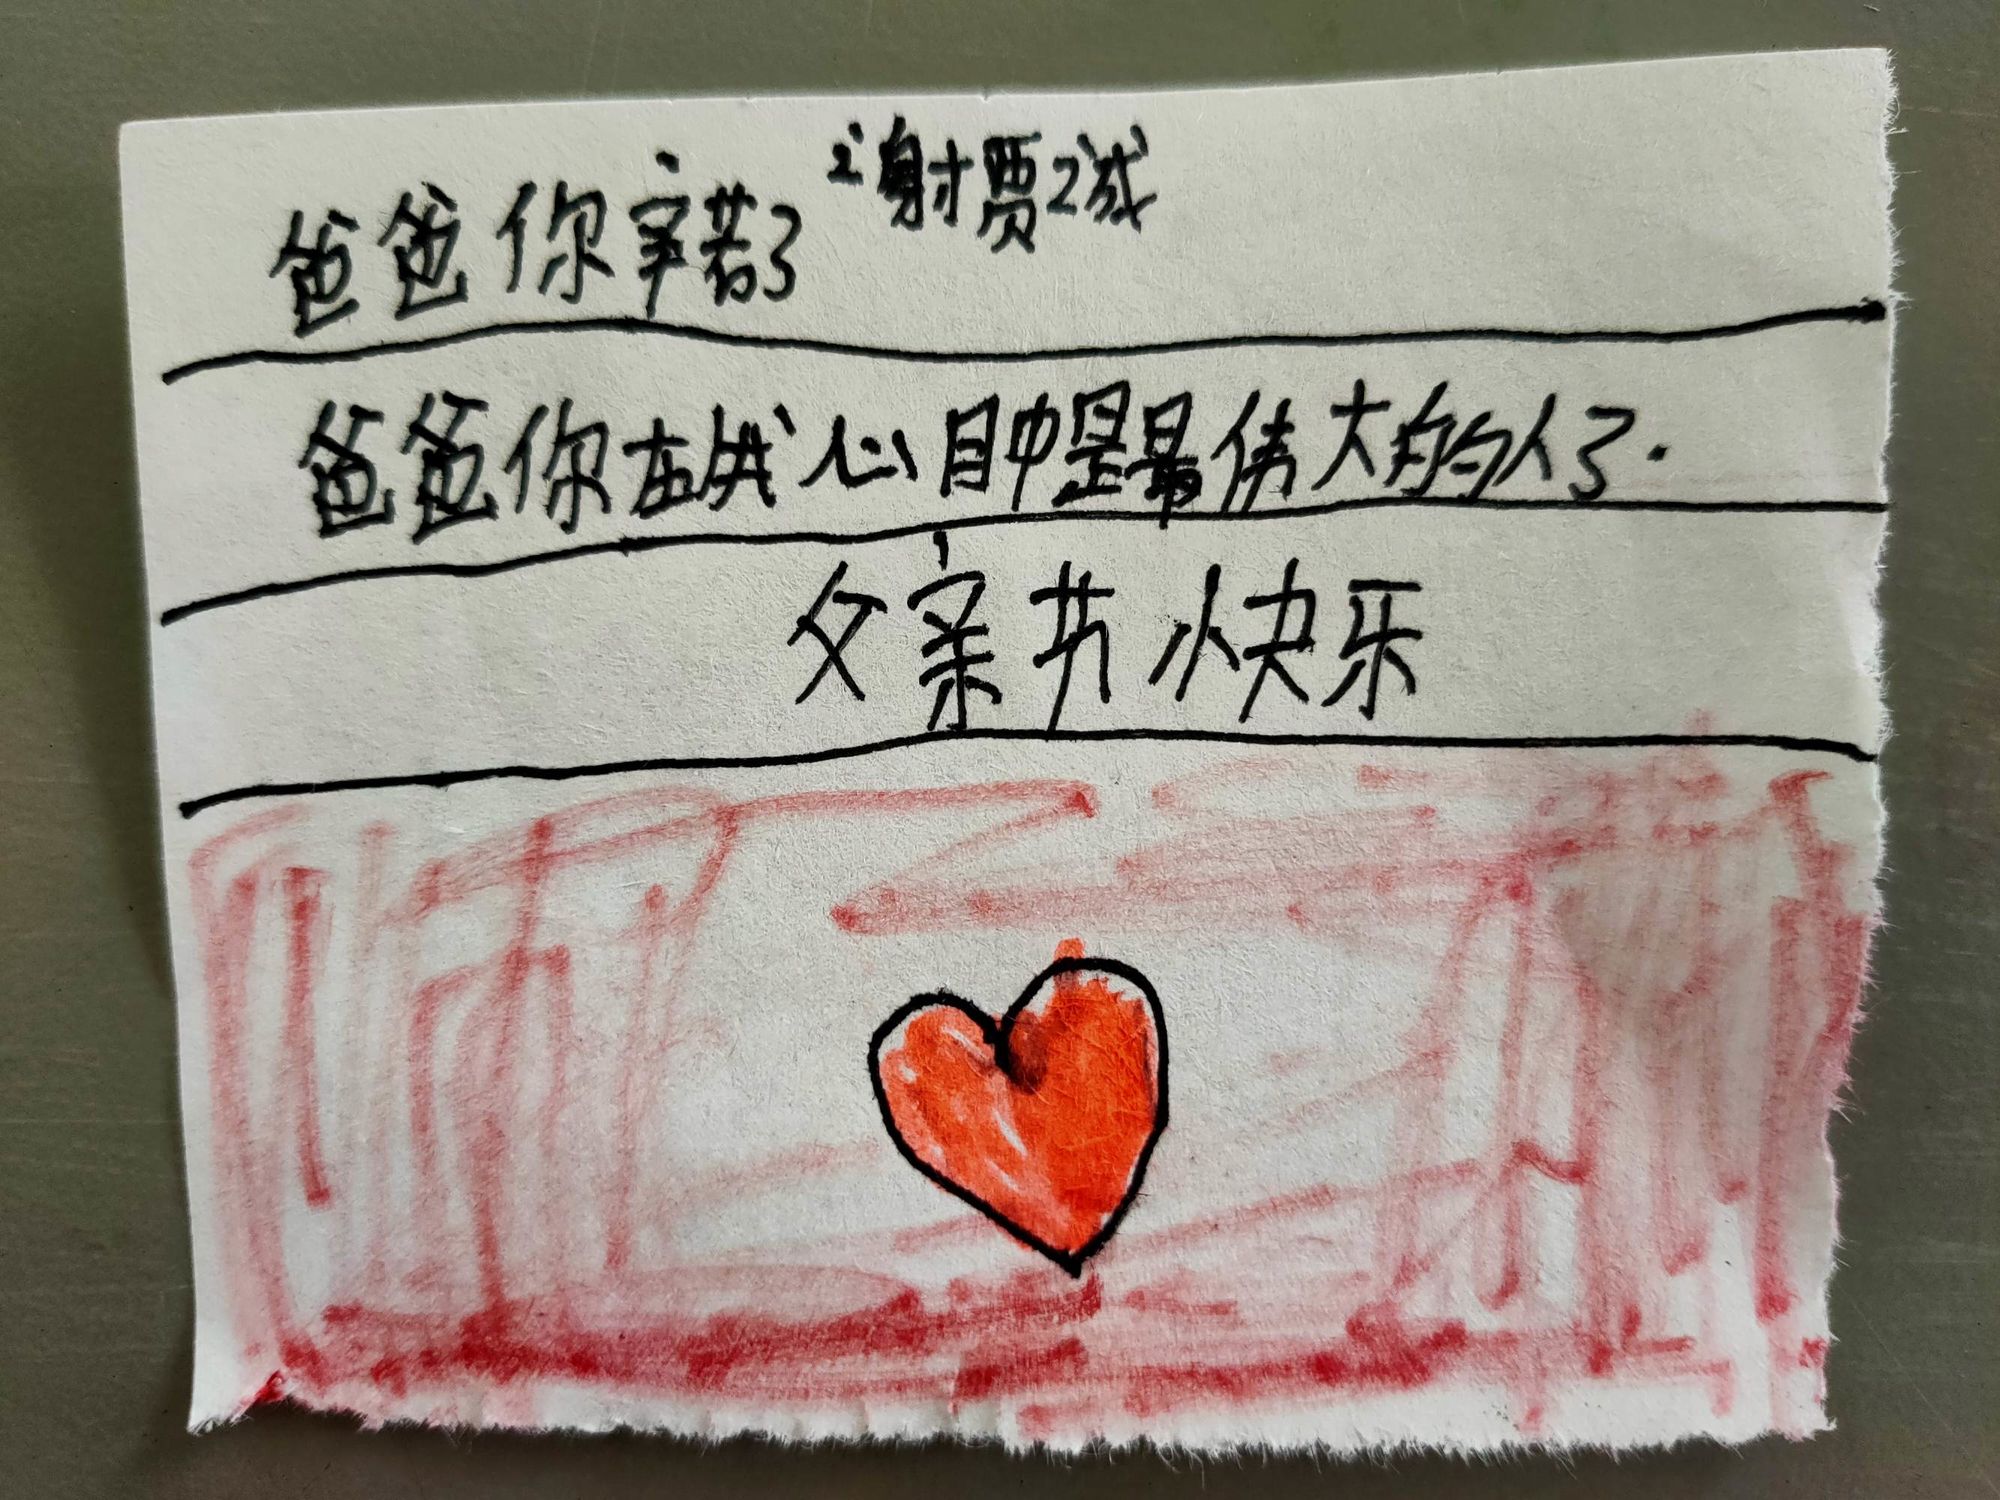 爸爸你辛苦了 谢贾诚
爸爸你在我心目中是最伟大的的人了.
父亲节快乐